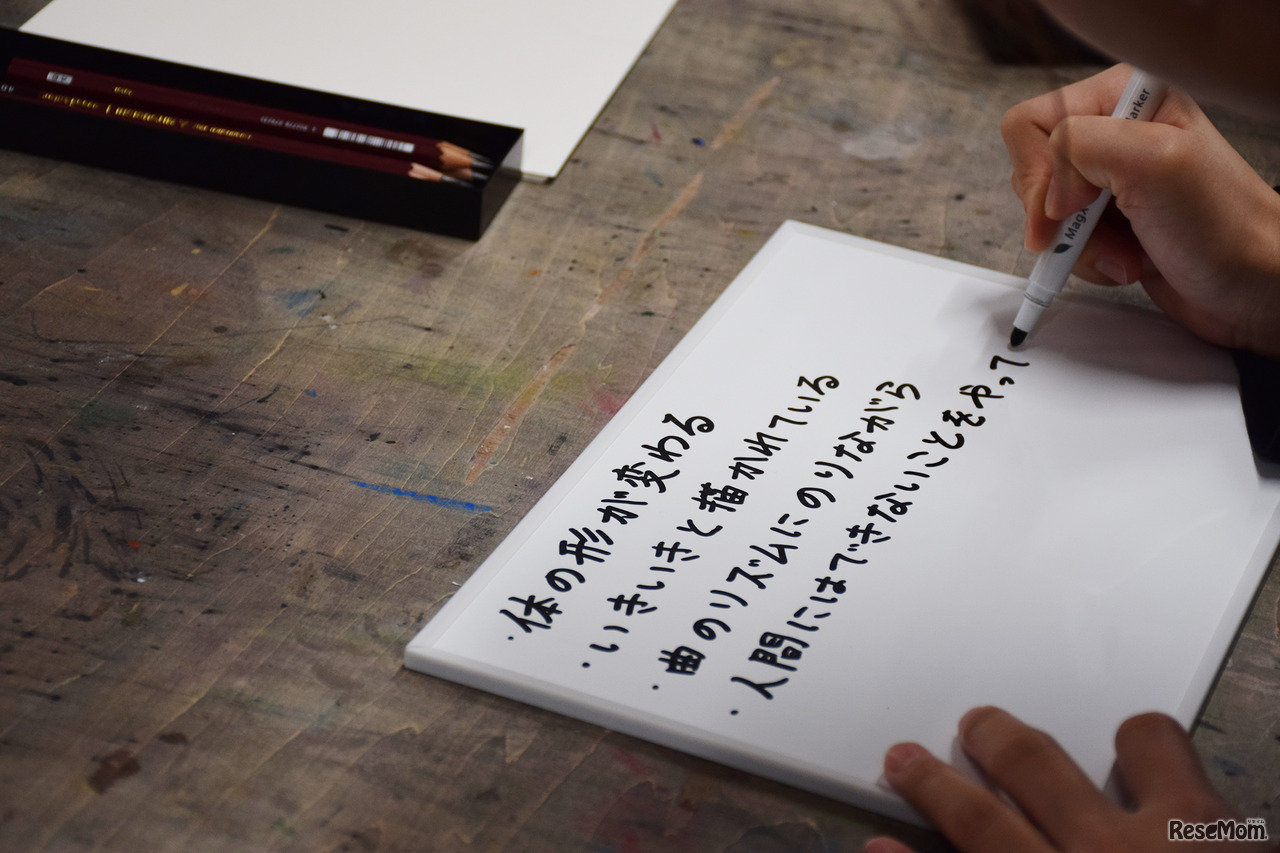 ・体の形が変わる
・いきいきと描かれている
・曲のリズムにのりながら
・人間にはできないことをやって
Mag
arker
ReseMom.